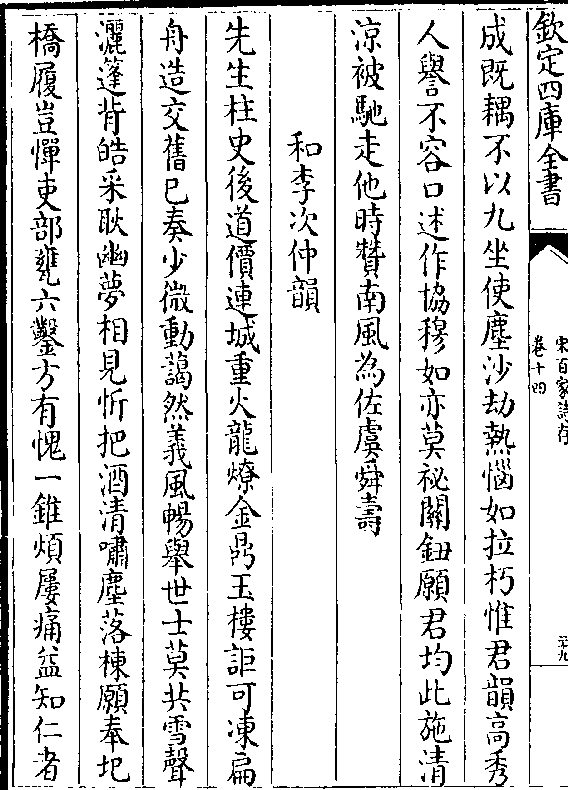 欽定四庫全書
宋百家詩存
卷十四
二十九
成既耦不以九坐使塵沙劫熱惱如拉朽惟君韻高秀
人譽不容口述作協穆如亦莫祕關鈕願君均此施清
涼被馳走他時贊南風為佐虞舜壽
和李次仲韻
先生柱史後道價連城重火龍燎金鼎玉樓詎可凍扁
舟造交舊已奏少微動藹然義風暢舉世士莫共雪聲
灑篷背皓采耿幽夢相見忻把酒清嘯塵落棟願奉圯
橋履豈憚吏部甕六鑿方有愧一錐煩屢痛益知仁者